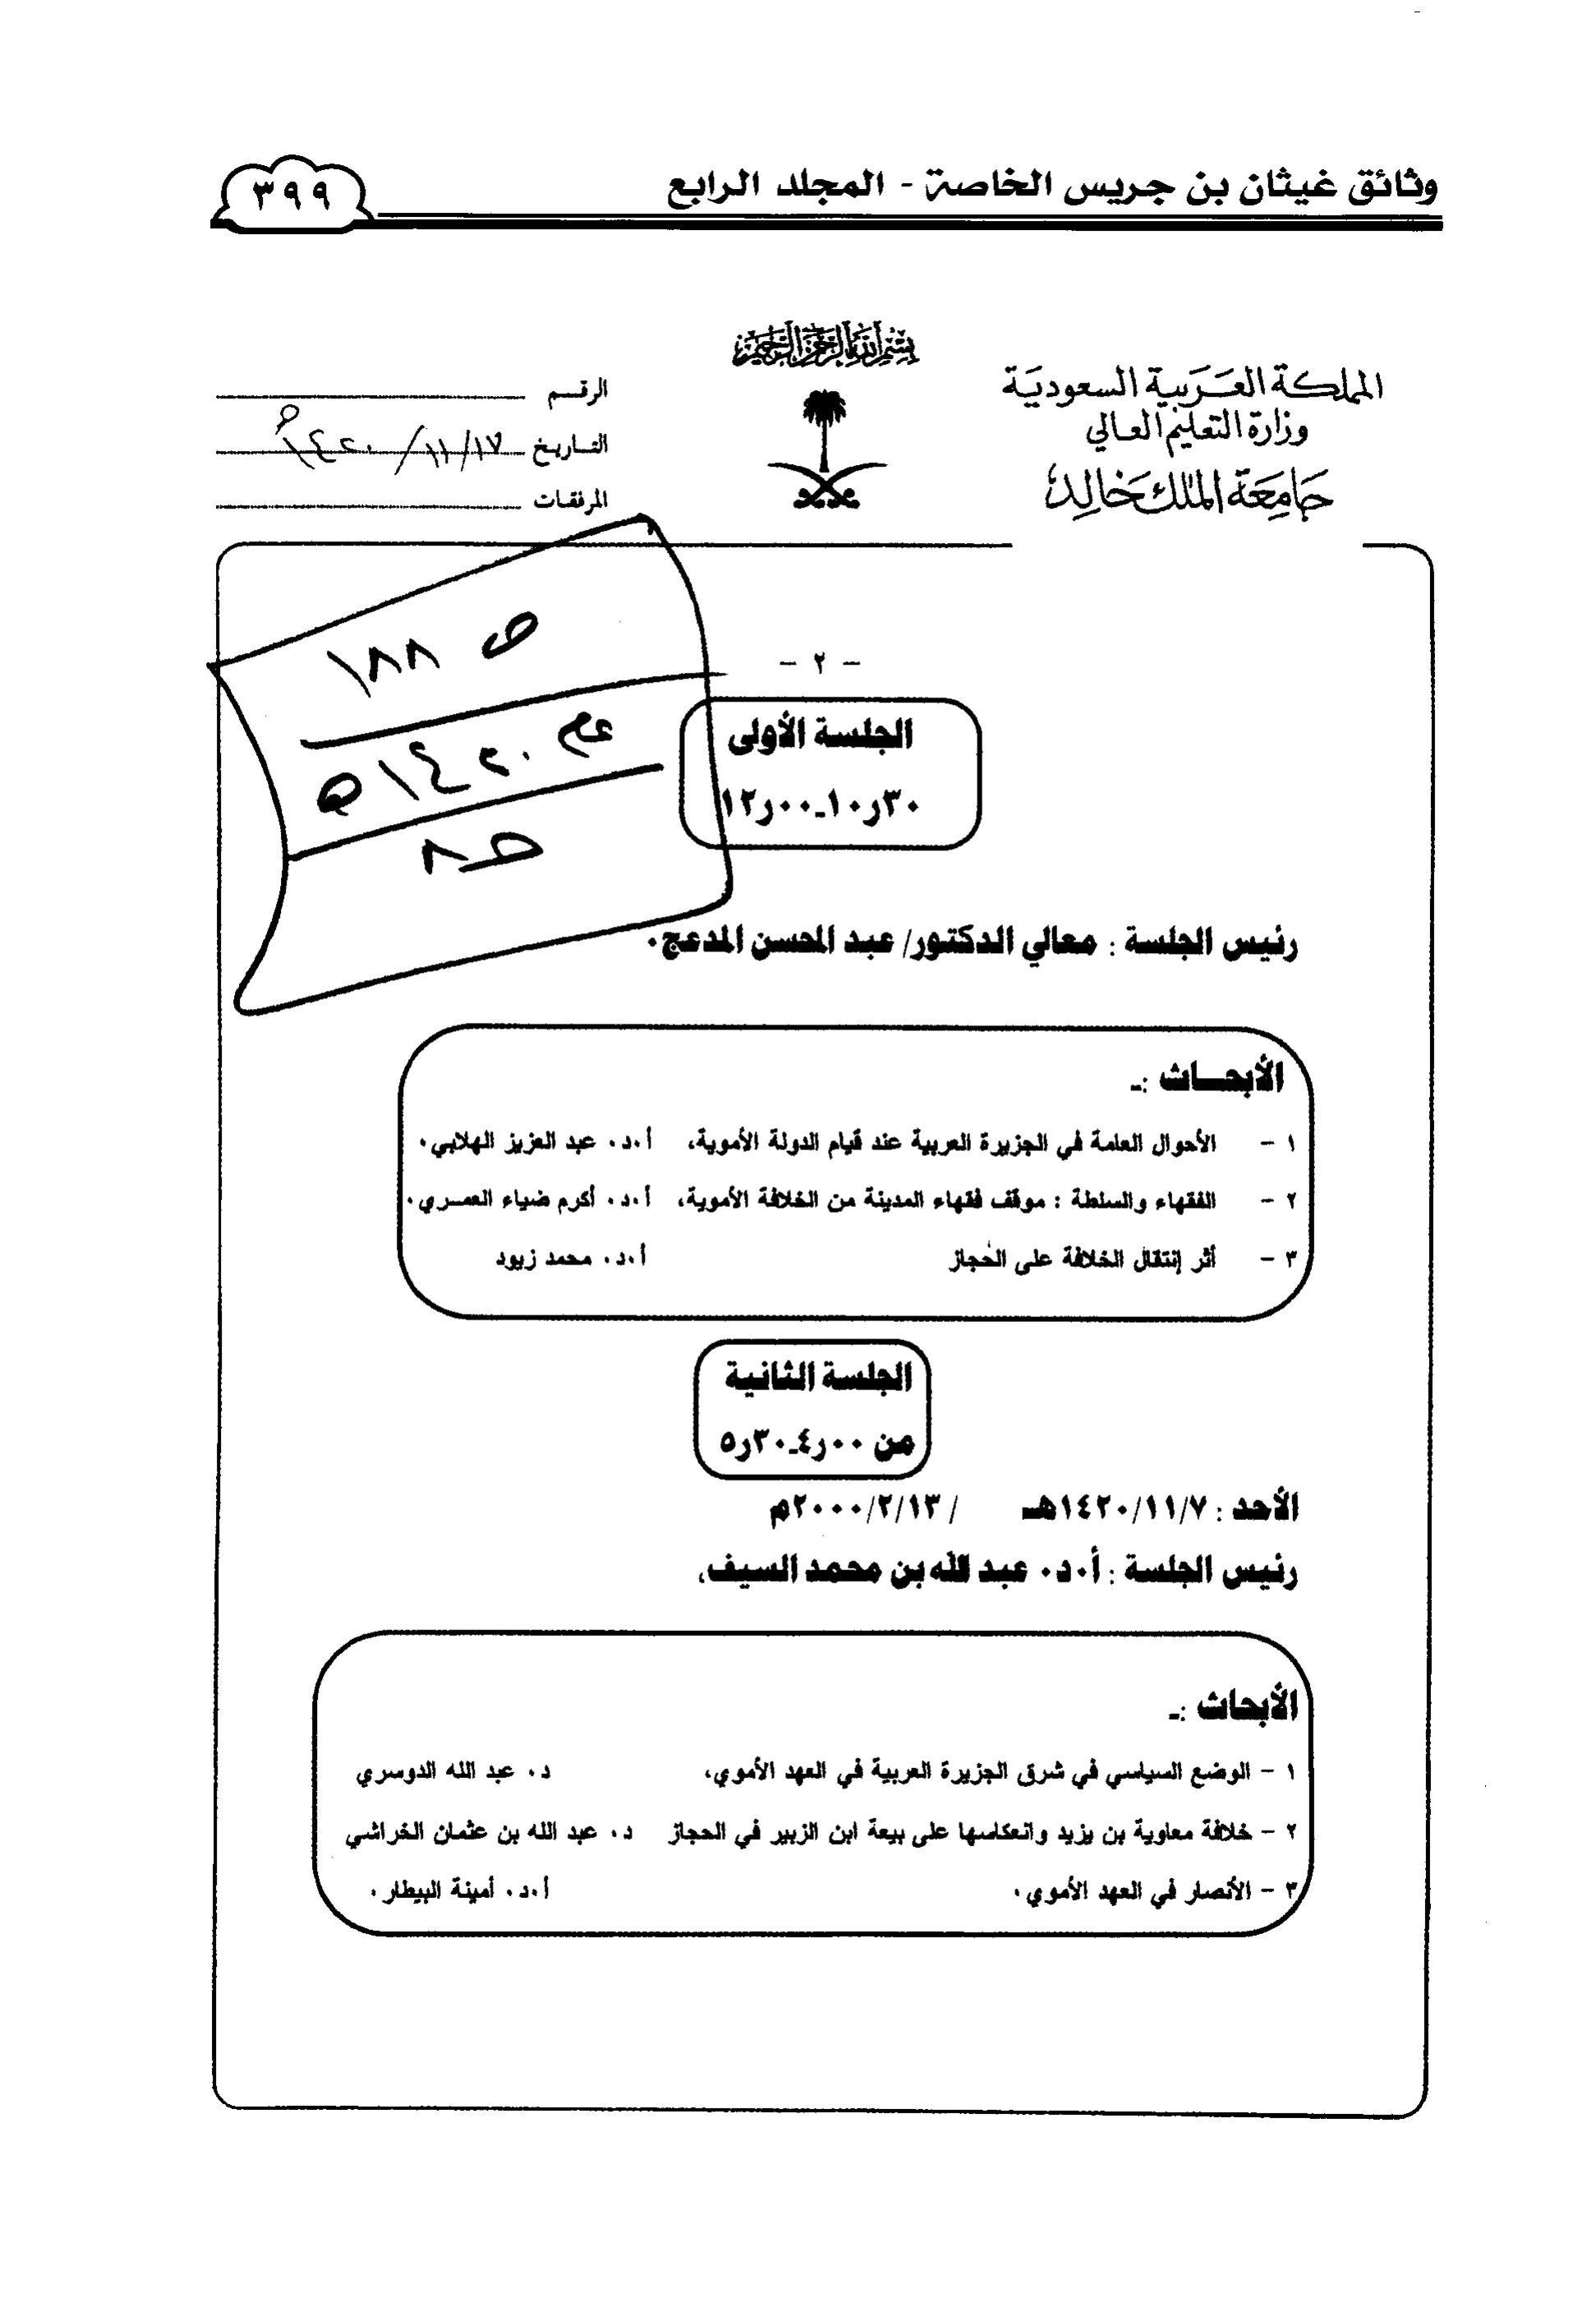 وثائق غيثان بن جريس الخاصة - المجلد الرابع
٣٩٩
بسم الله الرحمن الرحيم
المملكة العربية السعودية
وزارة التعليم العالي
جامعة الملك خالد
الرقم
التاريخ ١٤٢٠/١١/١٧هـ
المرفقات
ص ١٨٨
عام ١٤٢٠هـ
- ٢ -
الجلسة الأولى
٣٠ر١٠ـ٠٠ر١٢
رئيس الجلسة : معالي الدكتور/ عبد المحسن المدعج٠
الأبحـــاث :ـ
١ - الأحوال العامة في الجزيرة العربية عند قيام الدولة الأموية، أ٠د٠ عبد العزيز الهلابي٠
٢ - الفقهاء والسلطة : موقف فقهاء المدينة من الخلافة الأموية، أ٠د٠ أكرم ضياء العمـري٠
٣ - أثر إنتقال الخلافة على الحجاز أ٠د٠ محمد زيود
الجلسة الثانية
من ٠٠ر٤ـ٣٠ر٥
الأحد : ١٤٢٠/١١/٧هـ / ٢٠٠٠/٢/١٣م
رئيس الجلسة : أ٠د٠ عبد الله بن محمد السيف،
الأبحاث :ـ
١ - الوضع السياسي في شرق الجزيرة العربية في العهد الأموي، د٠ عبد الله الدوسري
٢ - خلافة معاوية بن يزيد وانعكاسها على بيعة ابن الزبير في الحجاز د٠ عبد الله بن عثمان الخراشي
٣ - الأنصار في العهد الأموي٠ أ٠د٠ أمينة البيطار٠